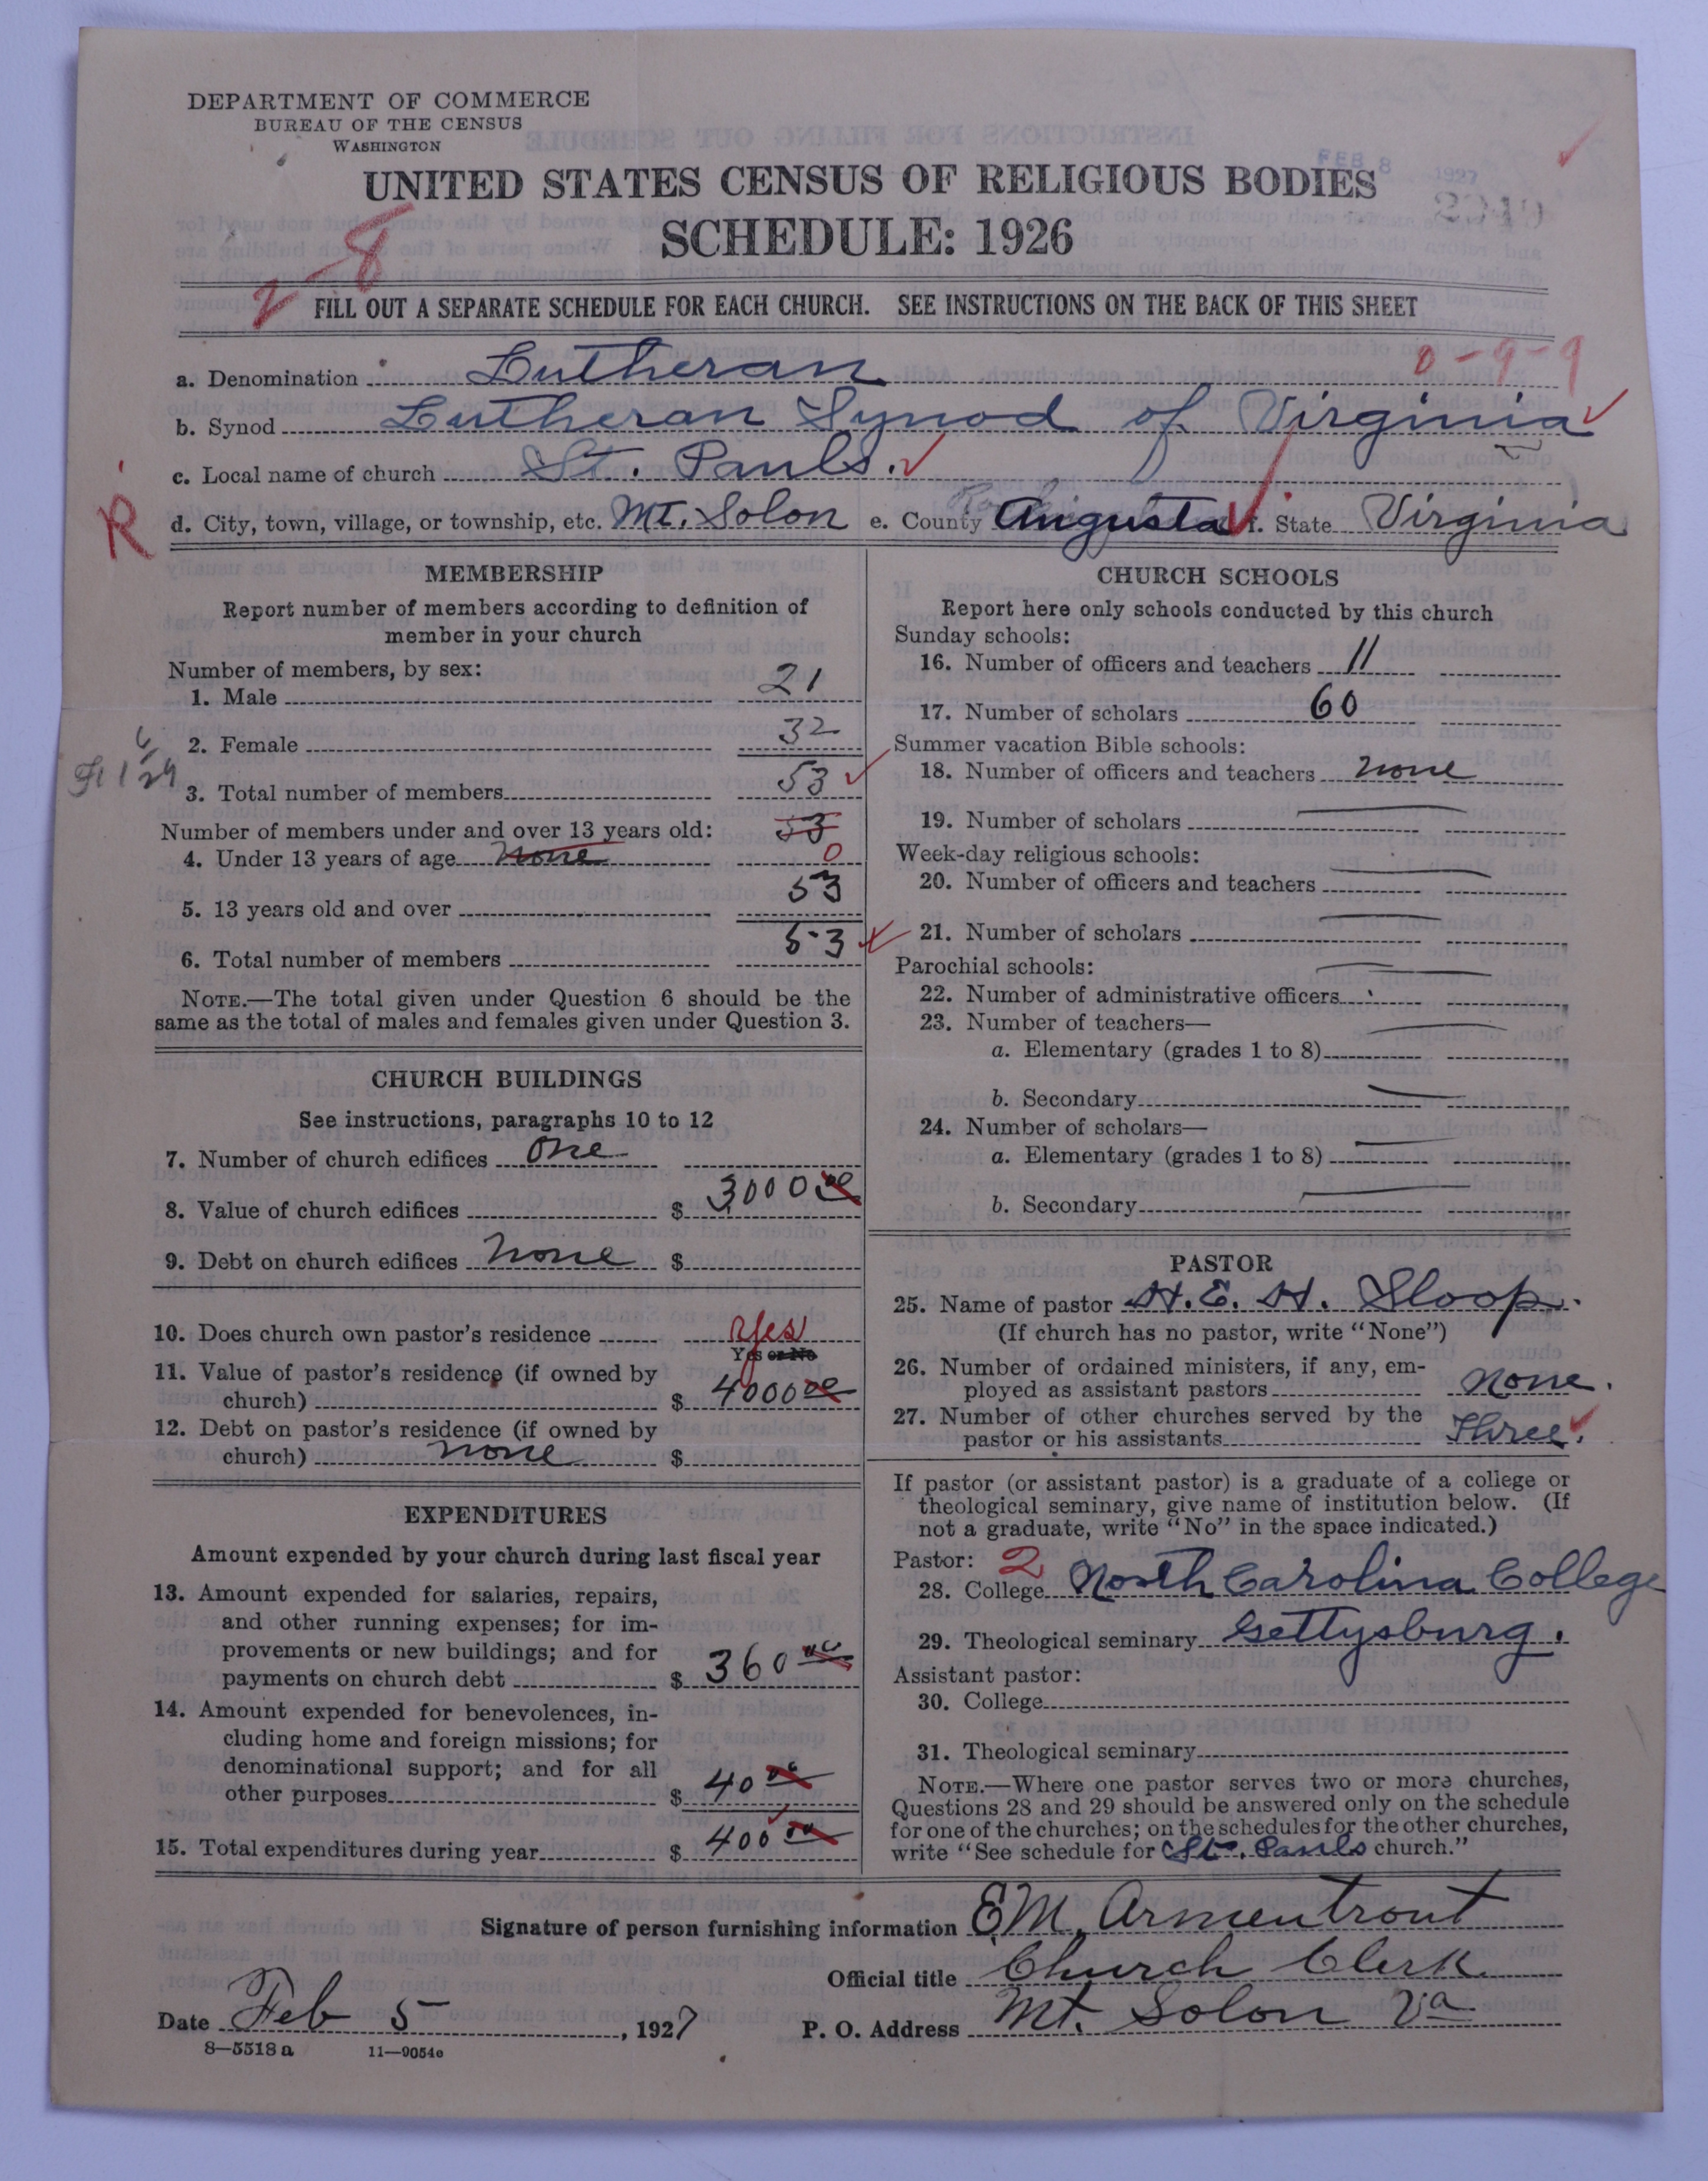 DEPARTMENT OF COMMERCE
BUREAU OF THE CENSUS
WASHINGTON
FEB 8 1927
UNITED STATES CENSUS OF RELIGIOUS BODIES
SCHEDULE: 1926
2-8
FILL OUT A SEPARATE SCHEDULE FOR EACH CHURCH. SEE INSTRUCTIONS ON THE BACK OF THIS SHEET
0-9-9
a. Denomination Lutheran
b. Synod Lutheran Synod of Virginia
c. Local name of church St. Pauls.
R
d. City, town, village, or township, etc. Mt. Solon e. County Augusta f. State Virginia
MEMBERSHIP
Report number of members according to definition of
member in your church
Number of members, by sex:
1. Male 21
2. Female 32
3. Total number of members 53
Number of members under and over 13 years old: 53
4. Under 13 years of age None 0
5. 13 years old and over 53
6. Total number of members 53
NOTE.—The total given under Question 6 should be the
same as the total of males and females given under Question 3.
CHURCH BUILDINGS
See instructions, paragraphs 10 to 12
7. Number of church edifices One
8. Value of church edifices $ 3000 00
9. Debt on church edifices None $
10. Does church own pastor's residence Yes
Yes or No
11. Value of pastor's residence (if owned by
church) $ 4000 00
12. Debt on pastor's residence (if owned by
church) None $
EXPENDITURES
Amount expended by your church during last fiscal year
13. Amount expended for salaries, repairs,
and other running expenses; for im-
provements or new buildings; and for
payments on church debt $ 360 00
14. Amount expended for benevolences, in-
cluding home and foreign missions; for
denominational support; and for all
other purposes $ 40 00
15. Total expenditures during year $ 400 00
CHURCH SCHOOLS
Report here only schools conducted by this church
Sunday schools:
16. Number of officers and teachers 11
17. Number of scholars 60
Summer vacation Bible schools:
18. Number of officers and teachers None
19. Number of scholars
Week-day religious schools:
20. Number of officers and teachers
21. Number of scholars
Parochial schools:
22. Number of administrative officers
23. Number of teachers—
a. Elementary (grades 1 to 8)
b. Secondary
24. Number of scholars—
a. Elementary (grades 1 to 8)
b. Secondary
PASTOR
25. Name of pastor H. E. H. Sloop.
(If church has no pastor, write "None")
26. Number of ordained ministers, if any, em-
ployed as assistant pastors None.
27. Number of other churches served by the
pastor or his assistants Three.
If pastor (or assistant pastor) is a graduate of a college or
theological seminary, give name of institution below. (If
not a graduate, write "No" in the space indicated.)
Pastor: 2
28. College North Carolina College
29. Theological seminary Gettysburg.
Assistant pastor:
30. College
31. Theological seminary
NOTE.—Where one pastor serves two or more churches,
Questions 28 and 29 should be answered only on the schedule
for one of the churches; on the schedules for the other churches,
write "See schedule for St. Pauls church."
Signature of person furnishing information E M. Armentrout
Official title Church Clerk
Date Feb 5, 1927
P. O. Address Mt. Solon Va
8—5518 a 11—9054c